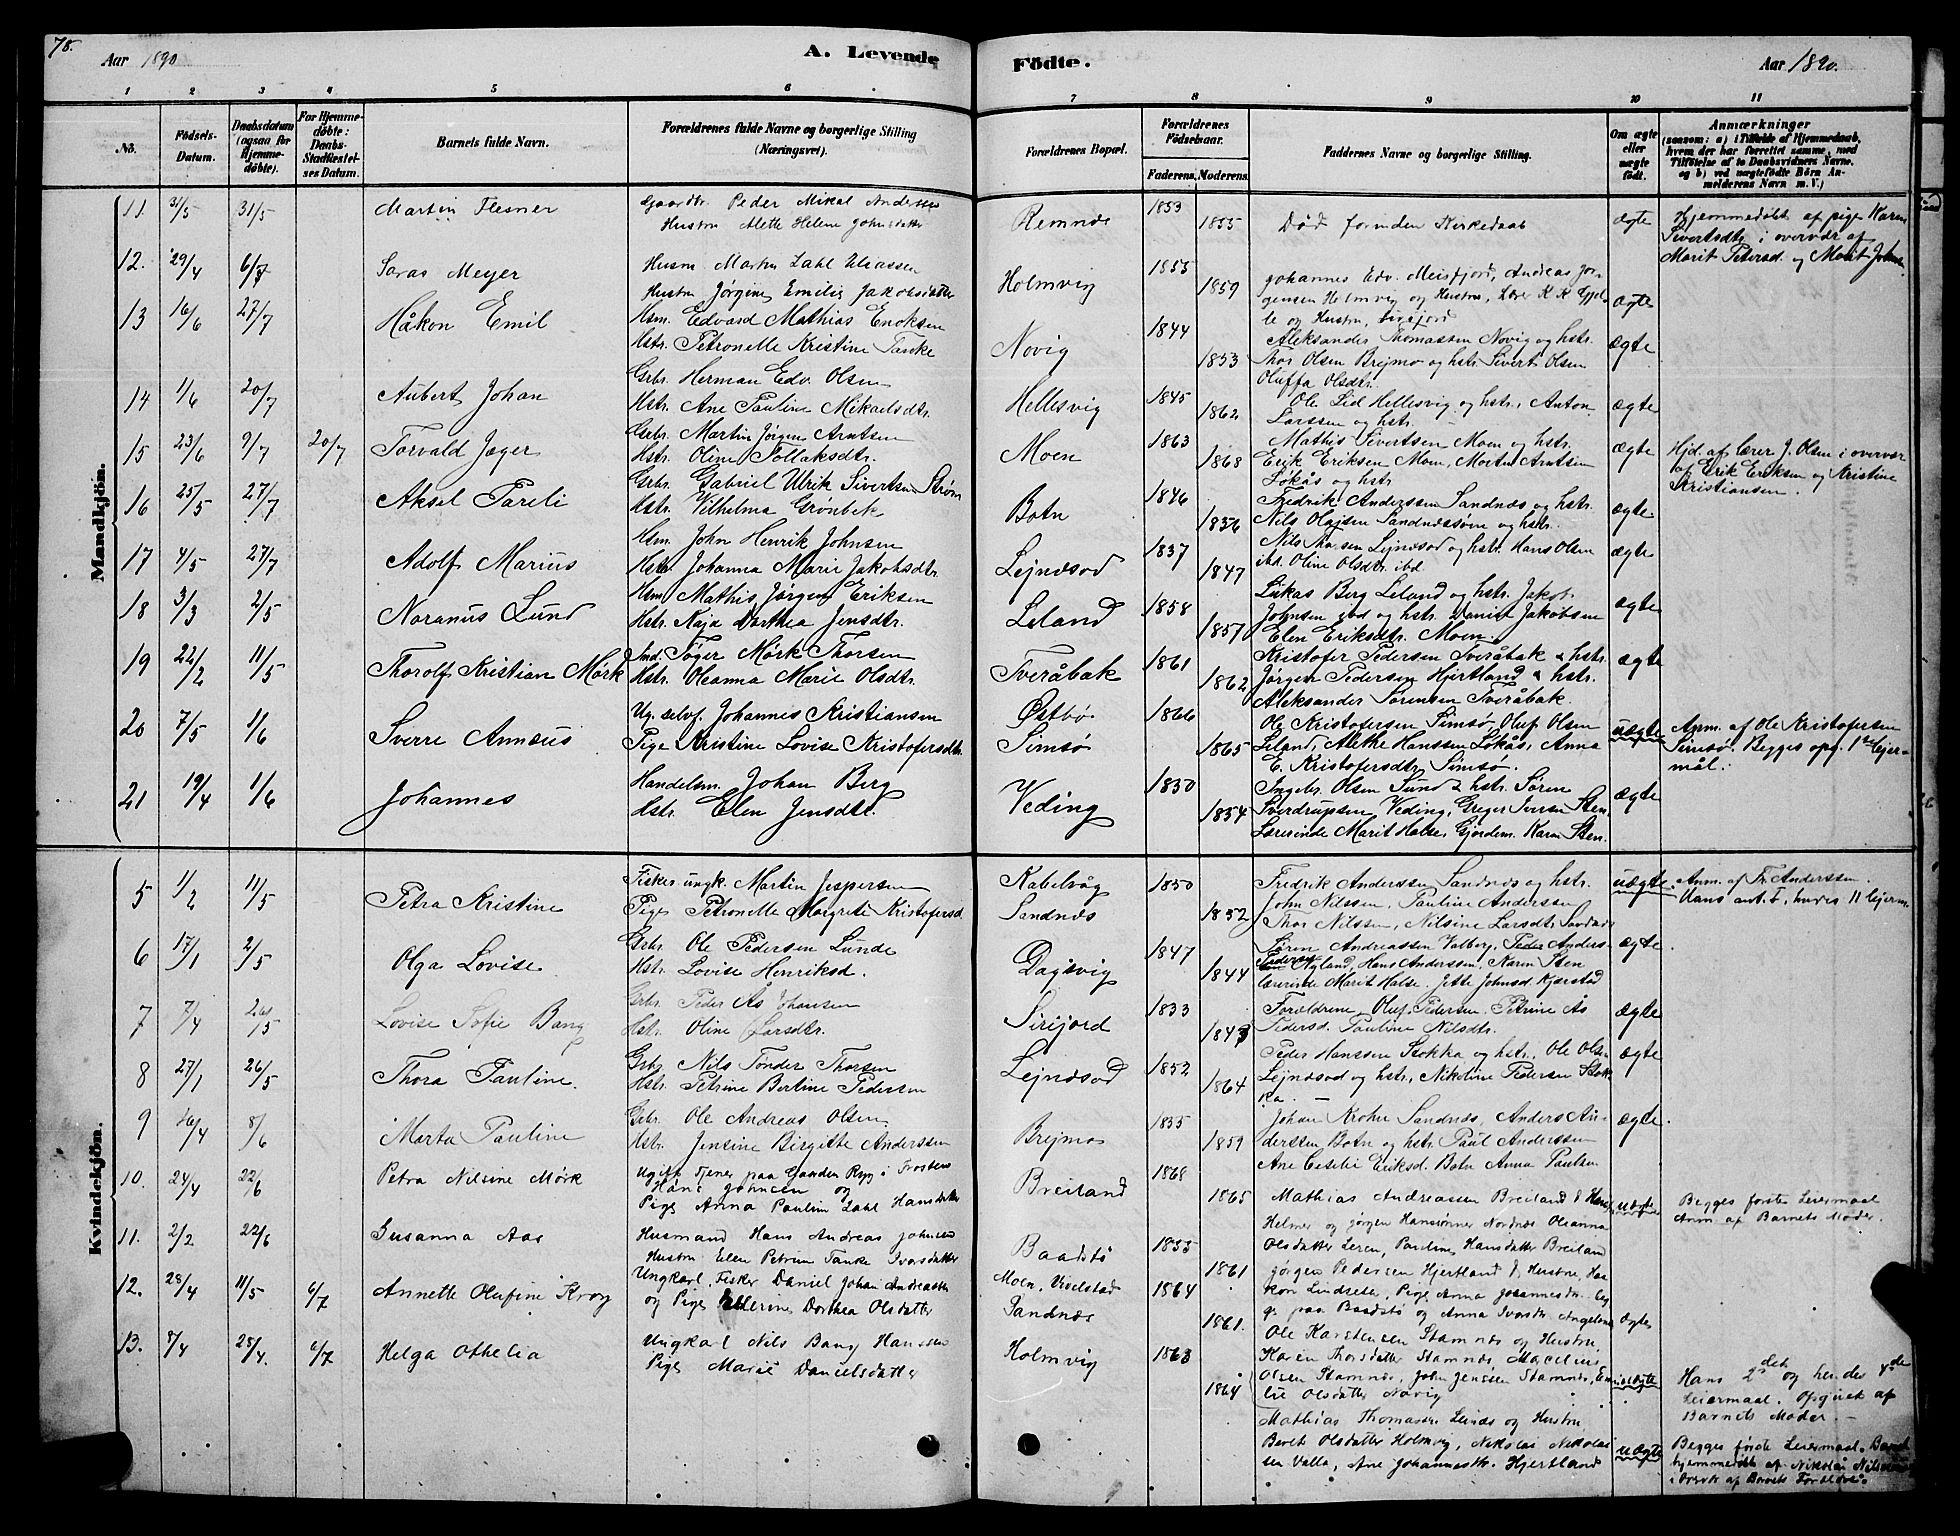 78.
Aar 1890
A. Levende
Fødte.
Aar 1890.
1 2 3 4 5 6 7 8 9 10 11
No.
Fødsels-Datum.
Daabsdatum (ogsaa for Hjemmedøbte).
For Hjemmedøbte: Daabs-Stadfæstelses Datum.
Barnets fulde Navn.
Forældrenes fulde Navne og borgerlige Stilling (Næringsvei).
Forældrenes Bopæl.
Forældrenes Fødselsaar.
Faderens. Moderens.
Faddernes Navne og borgerlige Stilling.
Om ægte eller uægte født.
Anmærkninger
(saasom: a) i Tilfælde af Hjemmedaab, hvem der har forrettet samme, med Tilføielse af to Daabsvidners Navne, og b) ved uægtefødte Børn Anmelderens Navn m. V.)
Mandkjön.
11. 31/5 31/5 Martin Flesner Gaardbr. Peder Mikal Andersen Remnæs 1853
Hustru Alette Helene Johnsdatter 1855 Død forinden Kirkedaab ægte
Hjemmedøbt af pige Karen
Sivertsdtr i overvær af
Marit Petersd. og Marit Johns
12. 29/4 6/7 Saras Meyer Husm. Martin Dahl Eliassen Holmvig 1855
Hustru Jørgine Emilie Jakobsdatter 1859 ægte
Johannes Edv. Meisfjord, Andreas Jør-
gensen Holmvig og Hustru, Lærer K K Gjel-
le og Hustru,
13 16/6 27/7 Håkon Emil Hsm. Edvard Mathias Enoksen Novig 1844
Hstr. Petronelle Kristine Tanke 1853 ægte
Aleksander Thomassen Novig og hstr.
Thor Olsen Brejmo og hstr. Sivert Olsen
Oluffa Olsdtr.
14 1/6 20/7 Aubert Johan Grbr. Herman Edv. Olsen Hellesvig 1845
Hstr. Ane Pauline Mikaelsdtr. 1862 ægte
Ole Lid Hellesvig og hstr., Anton
Larssen og hstr.
15 23/6 9/7 20/7 Torvald Jæger Grbr. Martin Jørgen Arntsen Moen 1863
Hstr. Oline Tollaksdtr. 1868 ægte
Mathis Sivertsen Moen og hstr.
Erik Eriksen Moen, Morten Arntsen
Løkås og hstr
Hjd. af lærer J. Olsen i overvær
af Erik Eriksen og Kristine
Kristiansen.
16 25/5 27/7 Aksel Pareli Grbr. Gabriel Ulrik Sivertsen Strøm Botn 1846
Hstr. Vilhelma Grønbek 1836 ægte
Fredrik Anderssen Sandnæs og hstr.
Nils Olajsen Sandnæssøen og hstr.
17 4/5 27/7 Adolf Marius Hsm. John Henrik Johnsen Lejndsod 1837
Hstr Johanna Marie Jakobsdtr. 1847 ægte
Nils Thorsen Lejndsod og hstr. Hans Olsen
ibd. Oline Olsdtr. ibd.
18 3/3 2/5 Noranus Lund Hsm Mathis Jørgen Eriksen Leland 1858
Hstr. Kaja Dorthea Jensdtr. 1857 ægte
Lukas Berg Leland og hstr. Jakob
Johnsen ibd og hstr. Daniel Jakobsen
Elen Eriksdtr. Moen.
19 22/2 11/5 Thorolf Kristian Mørk Ind. Tøger Mørk Thorsen Tveråbak 1861
Hstr. Oleanna Marie Olsdtr. 1862 ægte
Kristofer Pedersen Tveråbak & hstr.
Jørgen Pedersen Hjertland & hstr.
Aleksander Sørensen Tveråbak
20 7/5 1/6 Sverre Annæus Ug. selvf. Johannes Kristiansen Østbø 1866
Pige Kristine Lovise Kristofersdtr. Simsø 1865 uægte
Ole Kristofersen Simsø Oluf Olsen
Leland, Alethe Hanssen Løkås, Anna
E. Kristofersdtr. Simsø.
Anm. af Ole Kristofersen
Simsø. Begges opg. 1ste lejer-
mål.
21 19/4 1/6 Johannes Handelsm. Johan Berg Veding 1830
Hstr. Elen Jensdtr. 1854 ægte
Ingebr. Olsen Sund & hstr. Søren
Sverdrupssen Veding, Greger Iversen Sten
Lærerinde Marit Halse, Gjordem. Karen Sten
Kvindekjön.
5 1/2 11/5 Petra Kristine Fisker ungk. Martin Jespersen Kabelvåg 1850
Pige Petronelle Margrete Kristofersd. Sandnæs 1852 uægte.
Fredrik Anderssen Sandnæs og hstr.
John Nilssen, Pauline Andersen
Thor Nilssen, Nilsine Larsdtr. Sandnæs
Anm. af Fr. Anderssen.
Hans ant. I, hendes II lejerm.
6 17/1 2/5 Olga Lovise Grbr. Ole Pedersen Lunde Dagsvig 1847
Hstr. Lovise Henriksd. 1844 ægte
Søren Andreassen Valberg, Peder Anders-
Nyland, Hans Anderssen, Karen Sten
Lærerinde Marit Halse. Jette Johnsd Kjærstad
7 7/4 26/5 Lovise Sofie Bang Grbr. Peder Ås Johansen Sirijord 1833
Hstr. Oline Larsdtr. 1843 ægte
Forældrene, Oluf Pedersen, Petrine Ås
Pedersd. Pauline Nilsdtr.
8 27/1 26/5 Thora Pauline. Grbr. Nils Tønder Thorsen Lejndsod 1852
Hstr. Petrine Bertine Pedersen 1864 ægte
Peder Hanssen Stokka og hstr., Ole Ols.
Lejndsod og hstr., Nikoline Pedersen Stok-
ka.
9 16/4 8/6 Marta Pauline Grbr. Ole Andreas Olsen Brejmo 1835
Hstr. Jensine Birgitte Anderssen 1859 ægte.
Johan Krohn Sandnæs, Anders An-
derssen Botn og hstr. Paul Anderssen
Ane Cecilie Eriksd. Botn Anna Paulsen
10. 24/4 22/6 Petra Nilsine Mørk Ugift Tjener paa Gaarden Ryg i Trosten Breiland 1868
Hans Johnsen og
Pige Anna Pauline Dahl Hansdatter 1865 uægte
Mathias Andreassen Breiland & Hustru
Helmer og Jørgen Hanssønner Nordnæs Oleanna
Olsdatter Leren, Pauline Hansdatter Breiland
Begges første Leiermaal
Anm. af Barnets Moder.
11. 2/2 22/6 Susanna Aas Husmand Hans Andreas Johnsen Baadstø 1855
Hustru Elen Petrine Tanke Ivarsdatter 1861
Jørgen Pedersen Hjertland & Hustru, Haa-
kon Lindseter, Pige Anna Johannesdtr. Ryg
paa Baadstø og Anna Ivarsdtr. Angelsen ægte
12. 28/4 11/5 6/7 Annette Olufine Krog Ungkarl, Fisker Daniel Johan Andreassen Moen, Vivelstad 1864
og Pige Ellerine Dorthea Olsdatter Sandnæs 1861.
Ole Karstensen Stamnæs og Hustru
Karen Thorsdatter Stamnæs, Marcelius
Olsen Stamnæs, John Jenssen Stamnæs, Emi-
lie Olsdatter Novig uægte
Hans 2det og hendes 4de
Leiermaal. Opgivet af
Barnets Moder.
13. 8/4 28/4. 6/7 Helga Othelia Ungkarl Nils Bang Hanssen Holmvig 1863
Pige Marie Danielsdatter 1864
Mathias Thomassen Leines og Hustru
Beret Olsdatter Holmvig, Nikolai Nikolai-
sen Valla, Ane Johannesdtr. Hjertland uægte
Begges første Leiermaal. Barnet
hjemmedøbt af Nikolai Nilsen
i Overvær af Barnets Forældre.